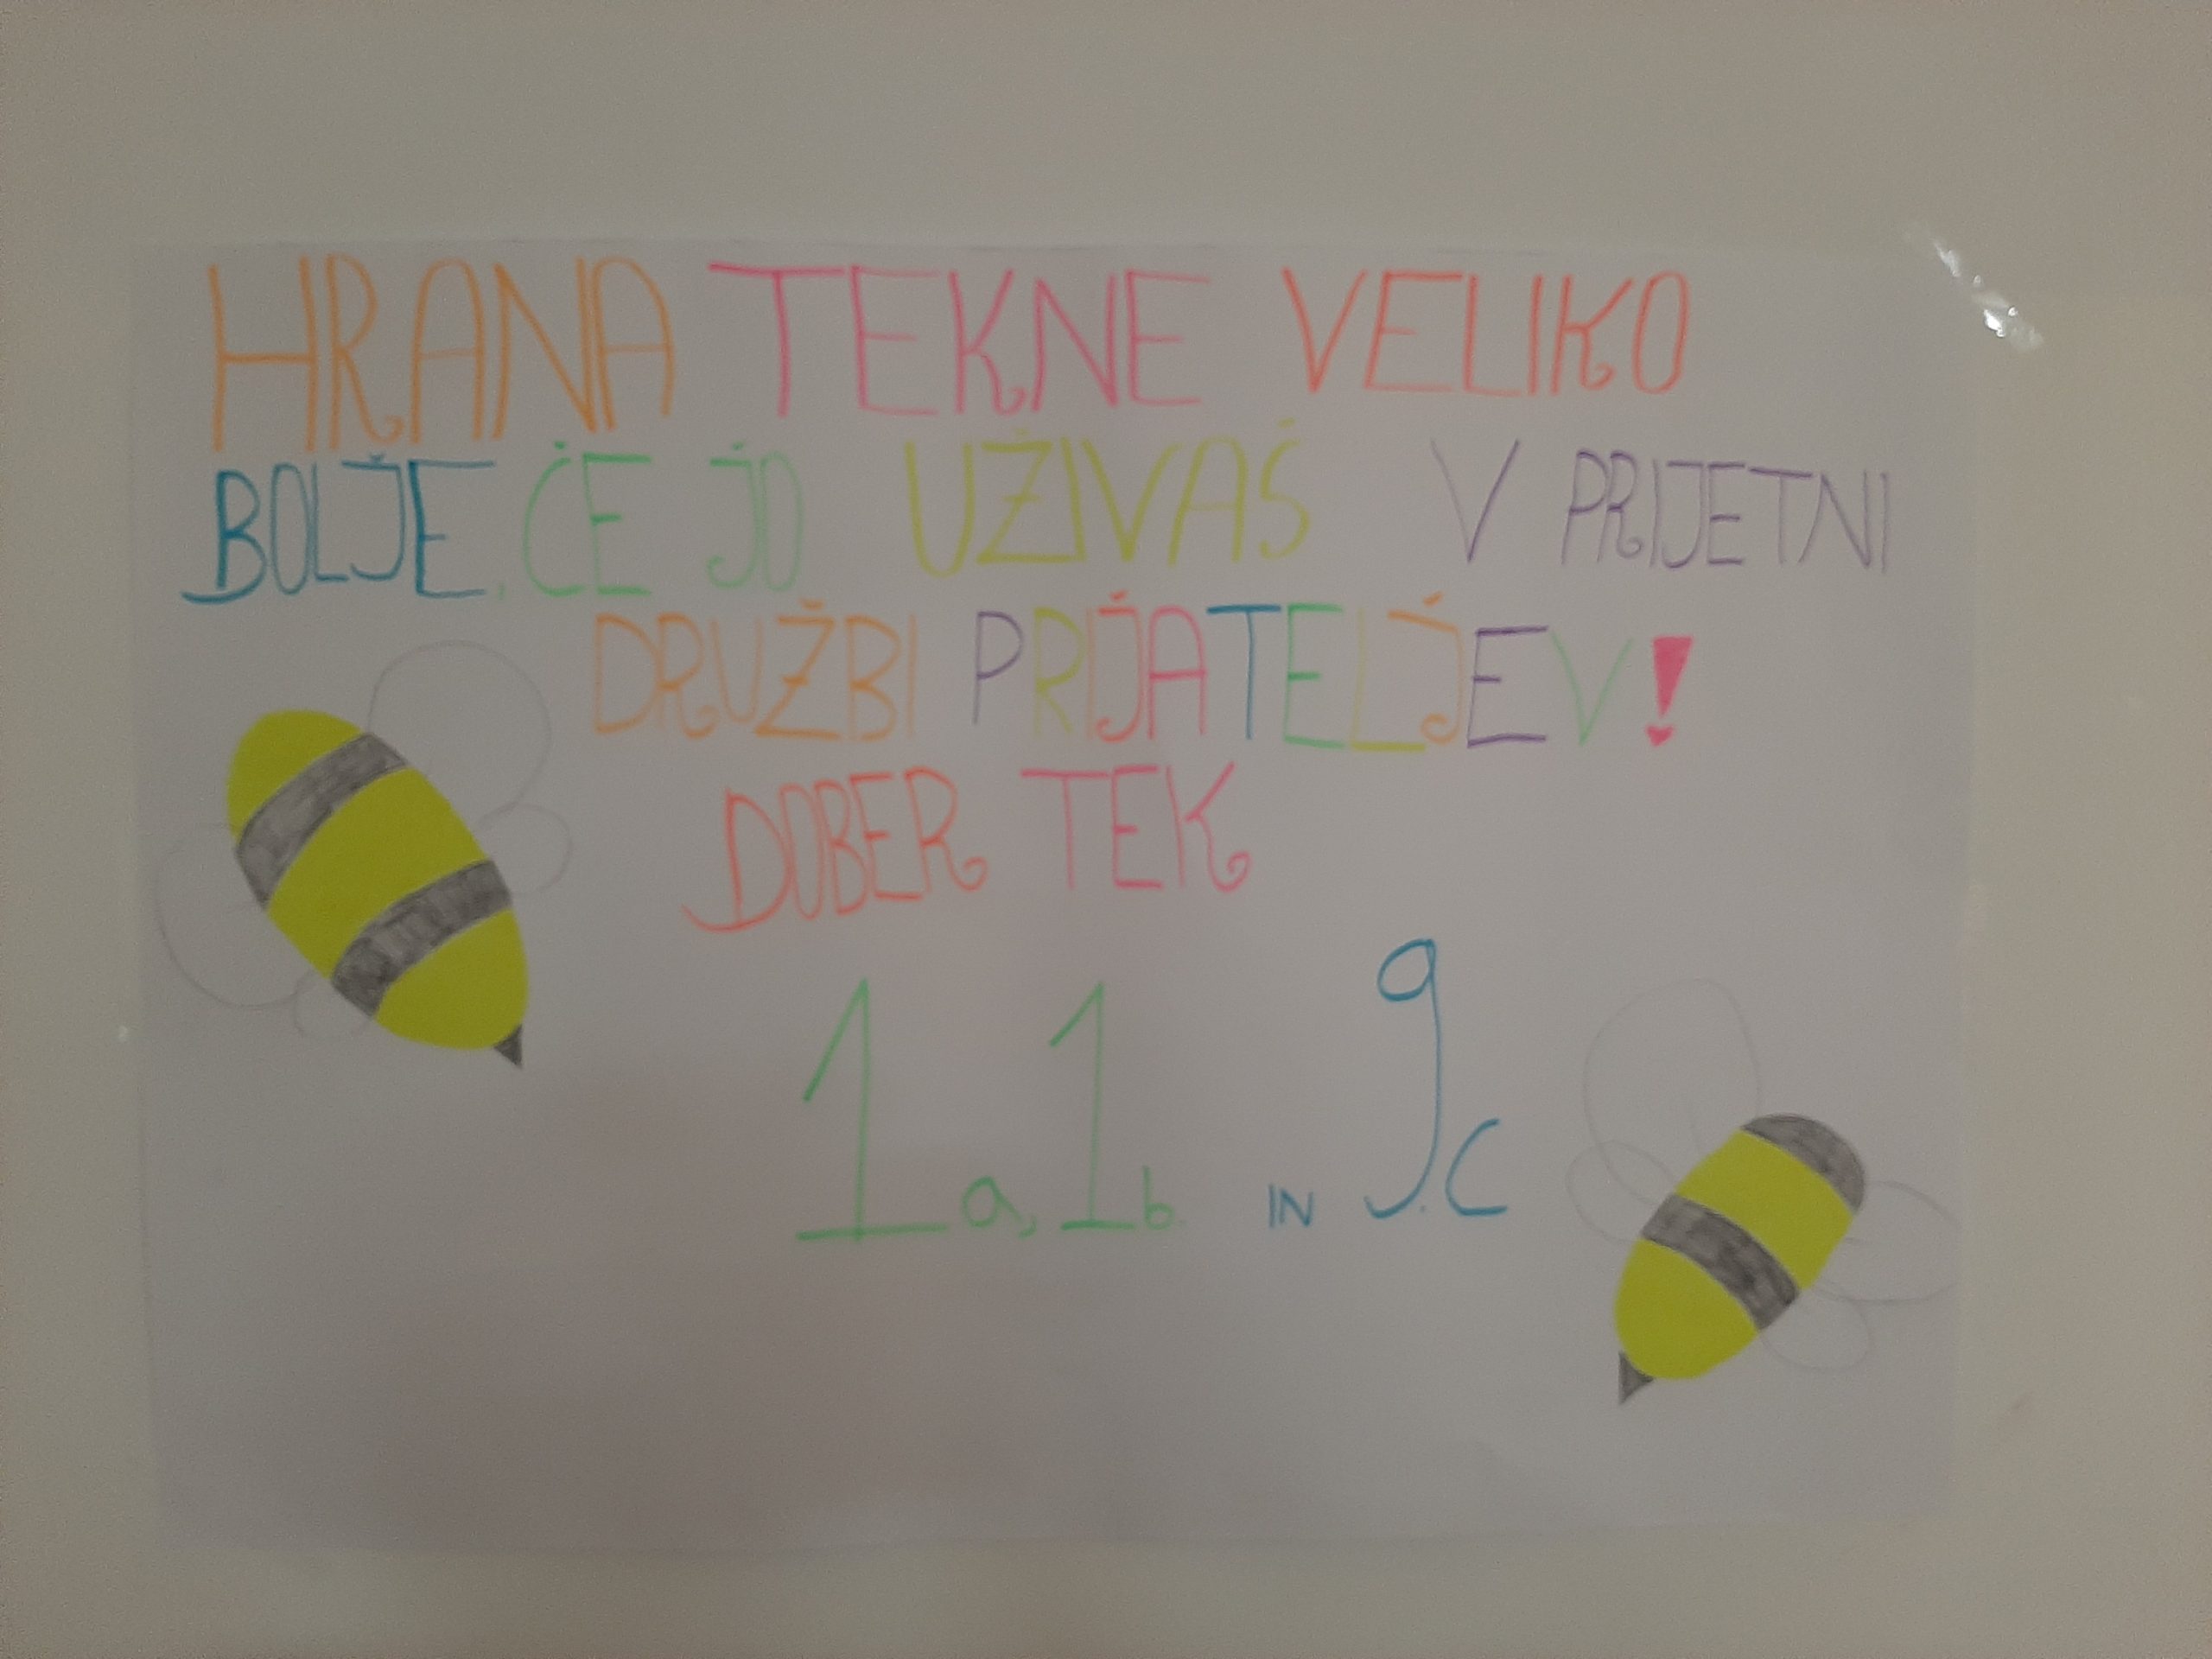 HRANA TEKNE VELIKO
BOLJE, ČE JO UŽIVAŠ V PRIJETNI
DRUŽBI PRIJATELJEV!
DOBER TEK
1a, 1b IN 9.c